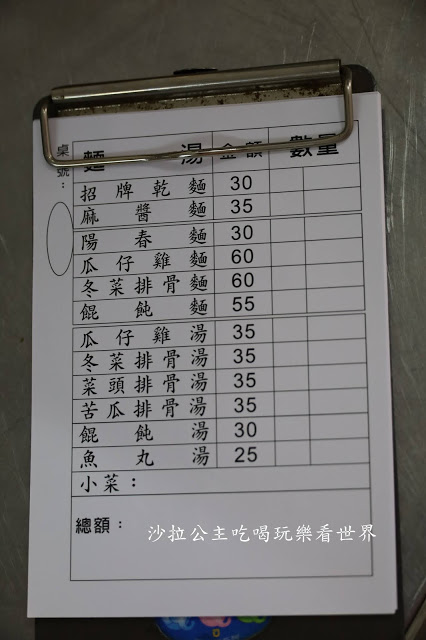 桌號：
麵 湯 金額 數量
招牌乾麵 30
麻醬麵 35
陽春麵 30
瓜仔雞麵 60
冬菜排骨麵 60
餛飩麵 55
瓜仔雞湯 35
冬菜排骨湯 35
菜頭排骨湯 35
苦瓜排骨湯 35
餛飩湯 30
魚丸湯 25
小菜：
總額：
沙拉公主吃喝玩樂看世界